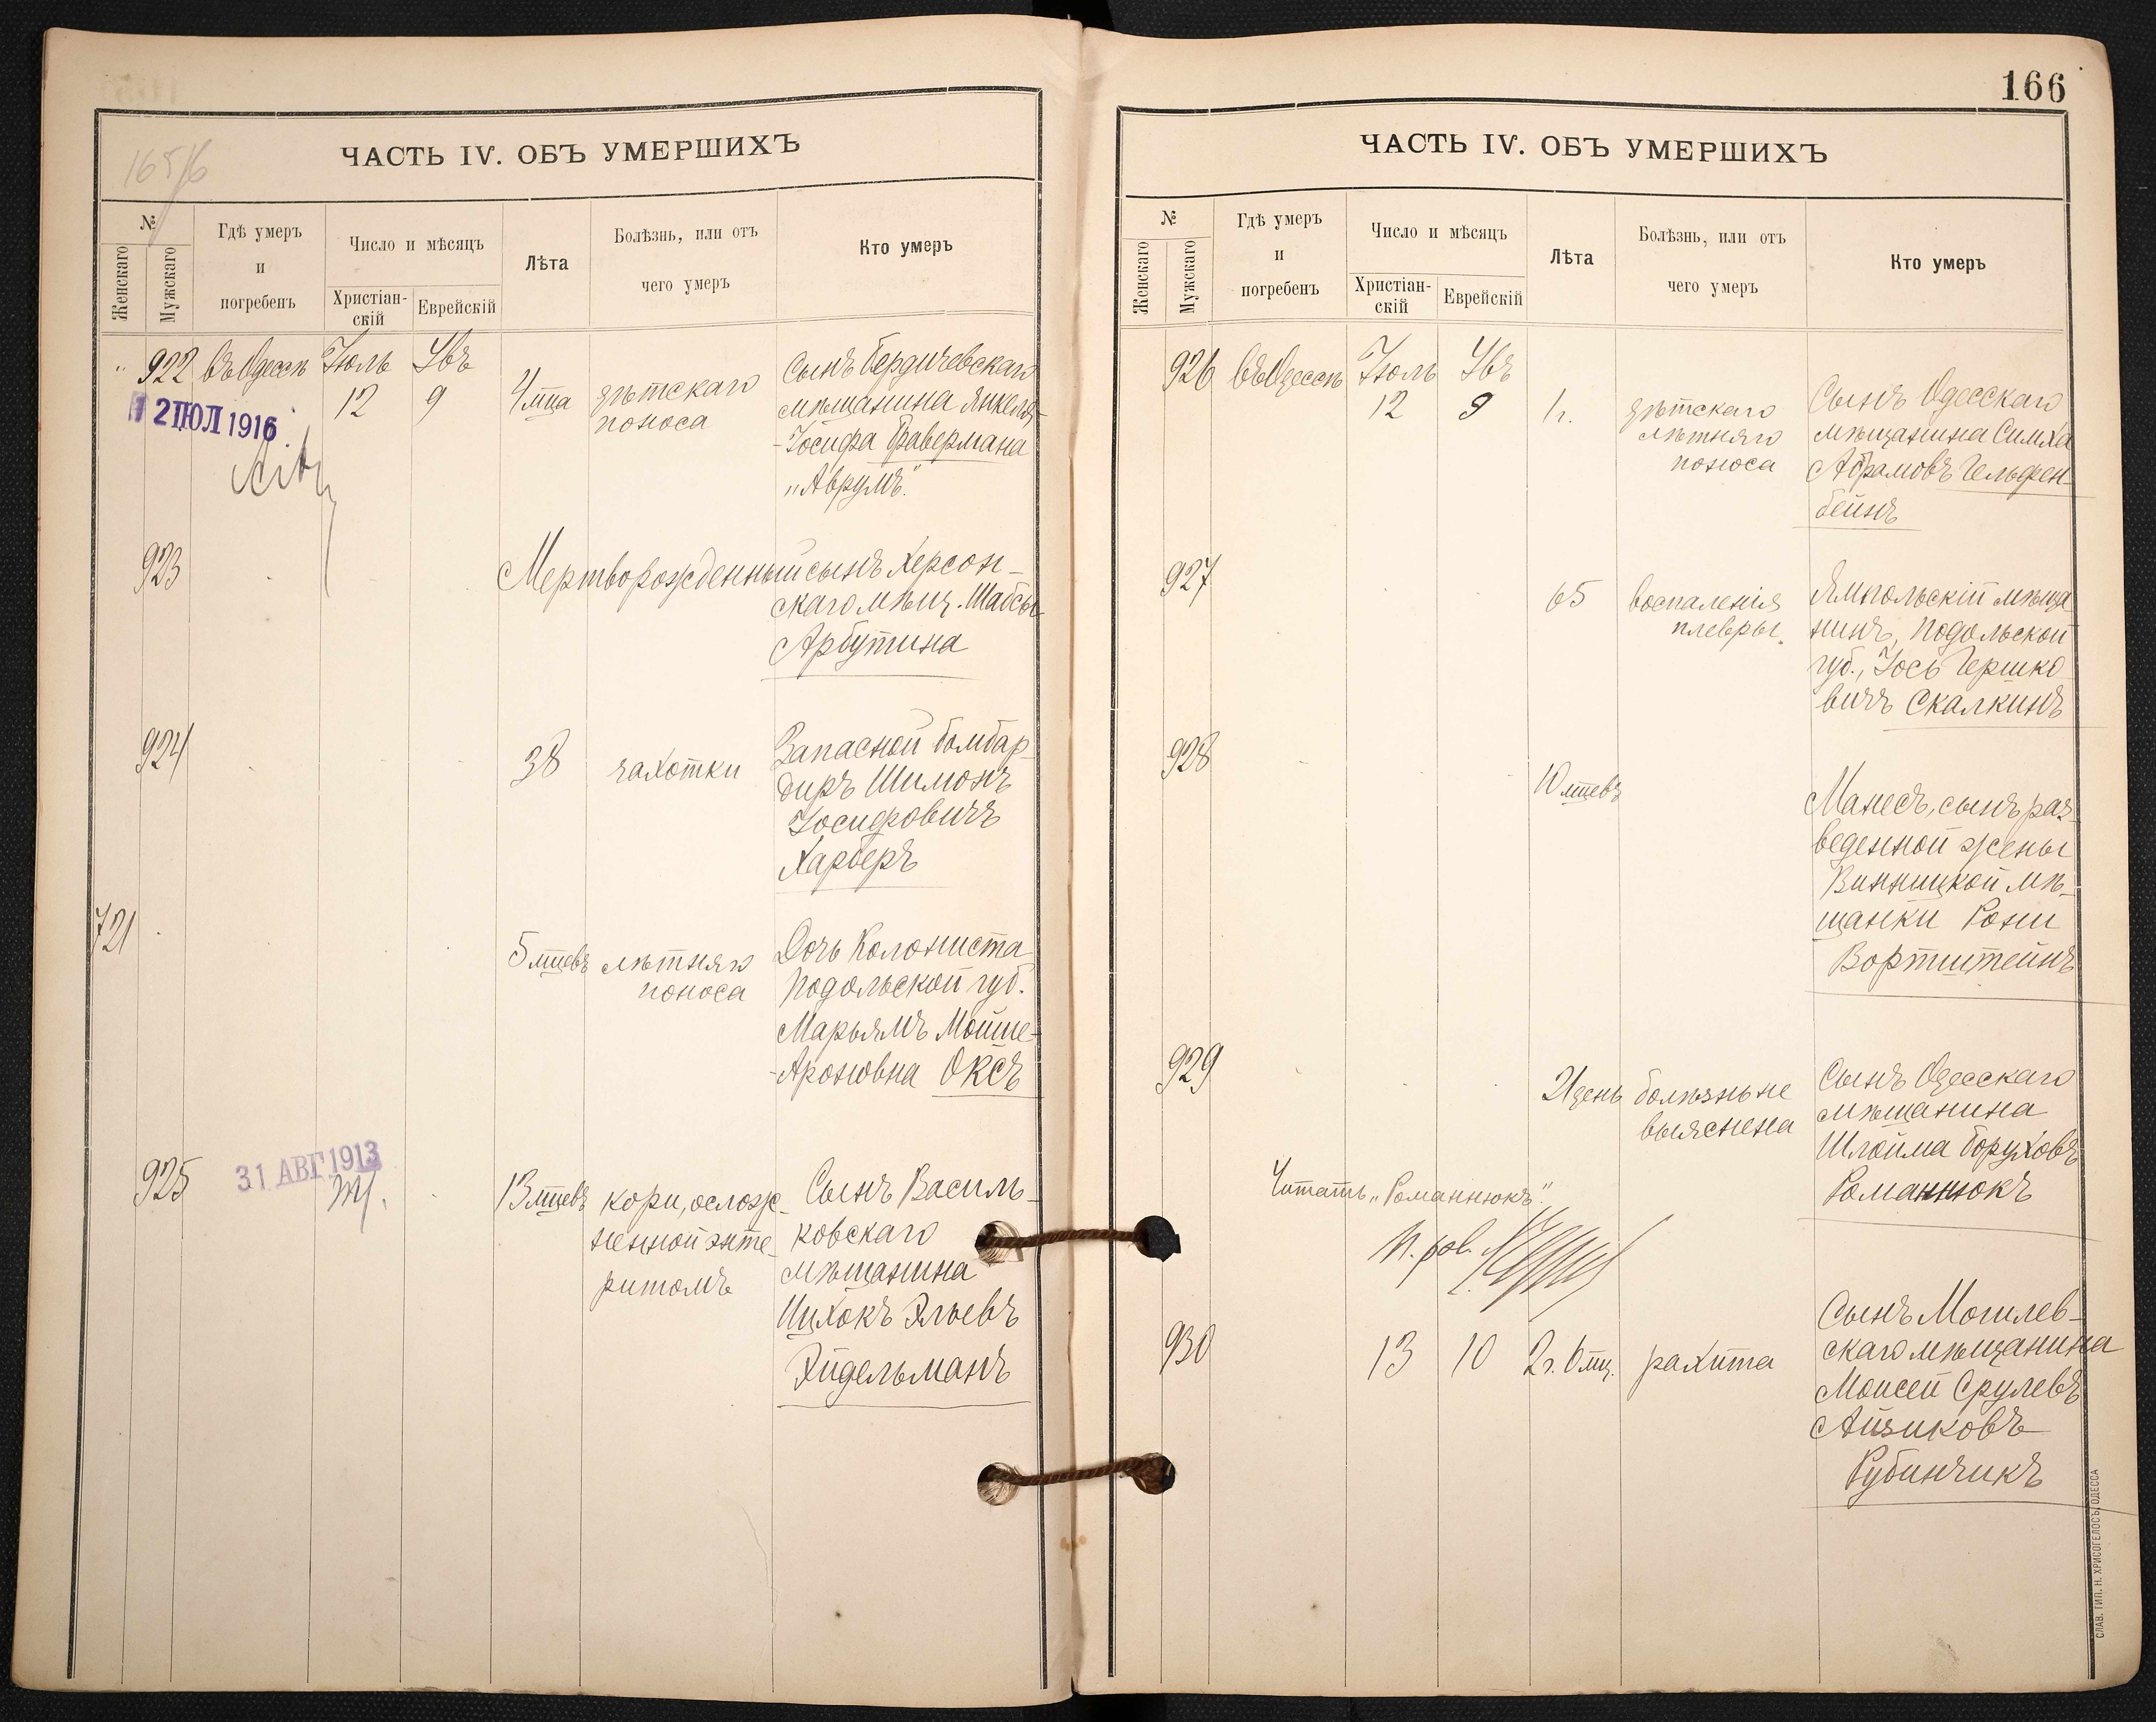 165/6
ЧАСТЬ IV. ОБЪ УМЕРШИХЪ
№
Женскаго
Мужскаго
Гдѣ умеръ
и
погребенъ
Число и мѣсяцъ
Христіан-
скій
Еврейскій
Лѣта
Болѣзнь, или отъ
чего умеръ
Кто умеръ
922
въ Одессѣ
Іюль
12
Увъ
9
4 мца
дѣтскаго
поноса
Сынъ Бердичевскаго
мѣщанина Янкеля-
-Іосифа Бравермана
„Аврумъ".
12 ІЮЛ 1916
923
Мертворожденный сынъ Херсон-
скаго мѣщ. Шабсы
Арбутина
924
38
чахотки
Запасной бомбар-
диръ Шимонъ
Іосифовичъ
Харберъ
721
5 мцевъ
лѣтняго
поноса
Дочь колониста
Подольской губ.
Марьямъ Мойше-
-Ароновна Оксъ
925
31 АВГ 1913
13 мцевъ
кори, ослож-
ненной энте-
ритомъ
Сынъ Василь-
ковскаго
мѣщанина
Ицхокъ Эльевъ
Эйдельманъ
166
ЧАСТЬ IV. ОБЪ УМЕРШИХЪ
№
Женскаго
Мужскаго
Гдѣ умеръ
и
погребенъ
Число и мѣсяцъ
Христіан-
скій
Еврейскій
Лѣта
Болѣзнь, или отъ
чего умеръ
Кто умеръ
926
въ Одессѣ
Іюль
12
Увъ
9
1 г.
дѣтскаго
лѣтняго
поноса
Сынъ Одесскаго
мѣщанина Симха
Абрамовъ Гельфен-
бейнъ
927
65
воспаленія
плевры.
Ямпольскій мѣща
нинъ, Подольской
губ., Іось Гершко
вичъ Скалкинъ
928
10 мцевъ
Манесъ, сынъ раз-
веденной жены
Винницкой мѣ-
щанки Рони
Вортштейнъ
929
21 день
болѣзнь не
выяснена
Сынъ Одесскаго
мѣщанина
Шлойма Боруховъ
Романнюкъ
Читать „Романнюкъ".
930
13
10
2 г. 6 мц.
рахита
Сынъ Могилев-
скаго мѣщанина
Моисей Срулевъ
Айзиковъ
Рубинчикъ
СЛАВ. ТИП. Н. ХРИСОГЕЛОСЪ, ОДЕССА